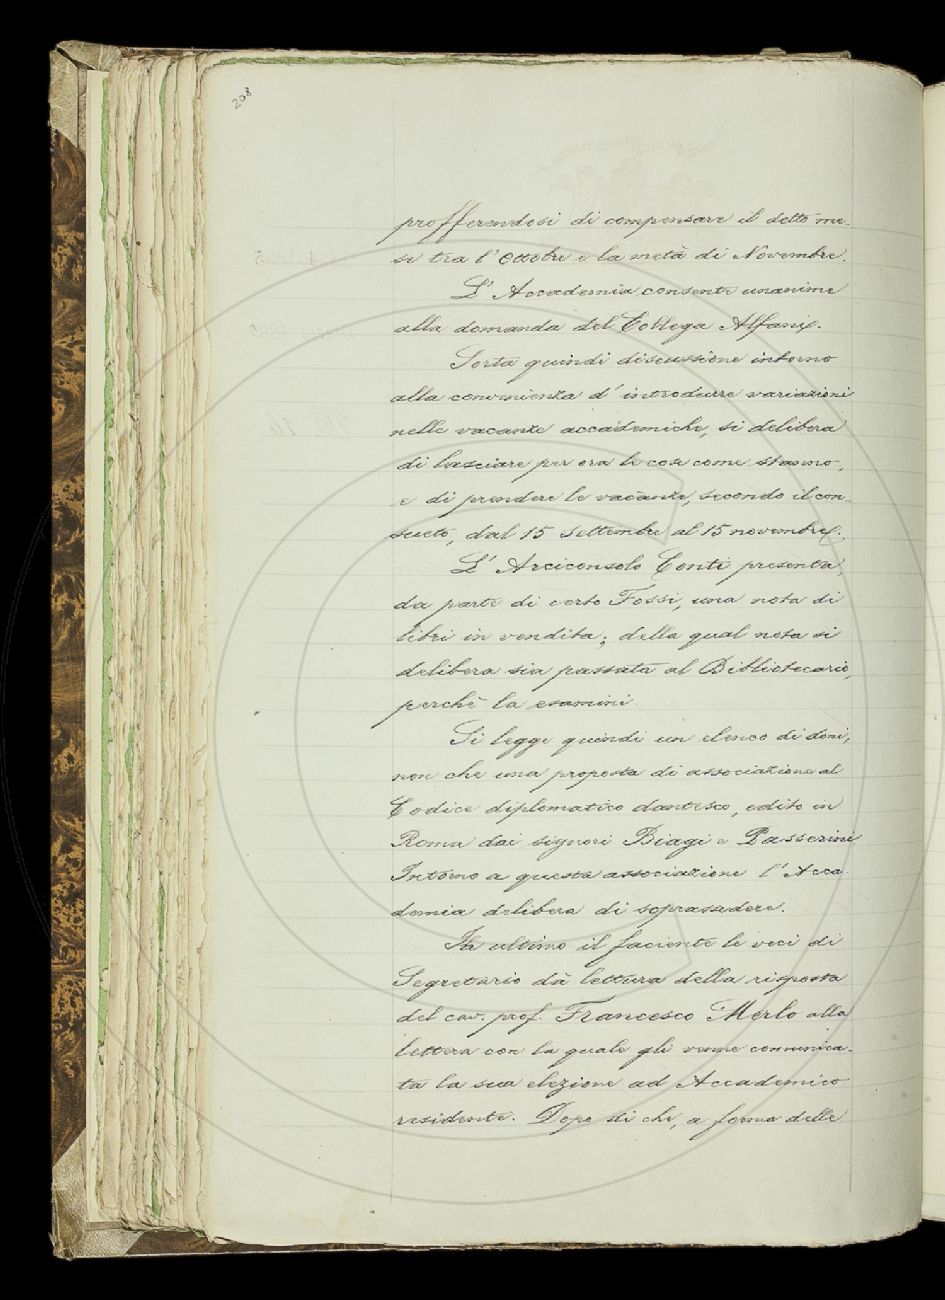 208
profferendosi di compensare il detto me-
se tra l'Ottobre e la metà di Novembre.
L'Accademia consente unanime
alla domanda del Collega Alfani.
Sorta quindi discussione intorno
alla convenienza d'introdurre variazioni
nelle vacanze accademiche, si delibera
di lasciare per ora le cose come stanno,
e di prendere le vacanze, secondo il con
sueto, dal 15 Settembre al 15 novembre.
L'Arciconsolo Conti presenta,
da parte di certo Fossi, una nota di
libri in vendita; della qual nota si
delibera sia passata al Bibliotecario,
perchè la esamini.
Si legge quindi un elenco di doni,
non che una proposta di associazione al
Codice diplomatico dantesco, edito in
Roma dai signori Biagi e Passerini
Intorno a questa associazione l'Acca-
demia delibera di soprassedere.
In ultimo il facente le veci di
Segretario dà lettura della risposta
del cav. prof. Francesco Merlo alla
lettera con la quale gli venne comunica-
ta la sua elezione ad Accademico
residente. Dopo di che, a forma delle